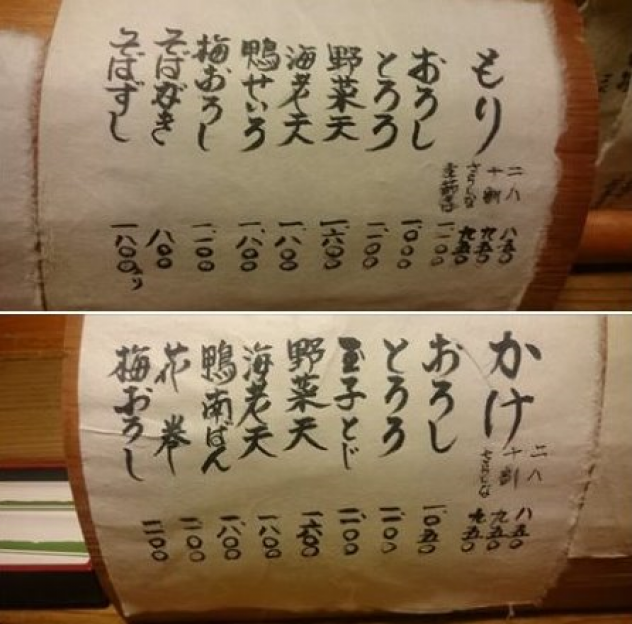 もり
二八 八五〇
十割 九五〇
さらしな 九五〇
季節そば 一、一〇〇
おろし 一、〇〇〇
とろろ 一、一〇〇
野菜天 一、六〇〇
海老天 一、八〇〇
鴨せいろ 一、八〇〇
梅おろし 一、一〇〇
そばがき 八〇〇
そばずし 一、八〇〇より
かけ
二八 八五〇
十割 九五〇
さらしな 九五〇
おろし 一、〇五〇
とろろ 一、一〇〇
玉子とじ 一、一〇〇
野菜天 一、六〇〇
海老天 一、八〇〇
鴨南ばん 一、八〇〇
花巻 一、一〇〇
梅おろし 一、一〇〇